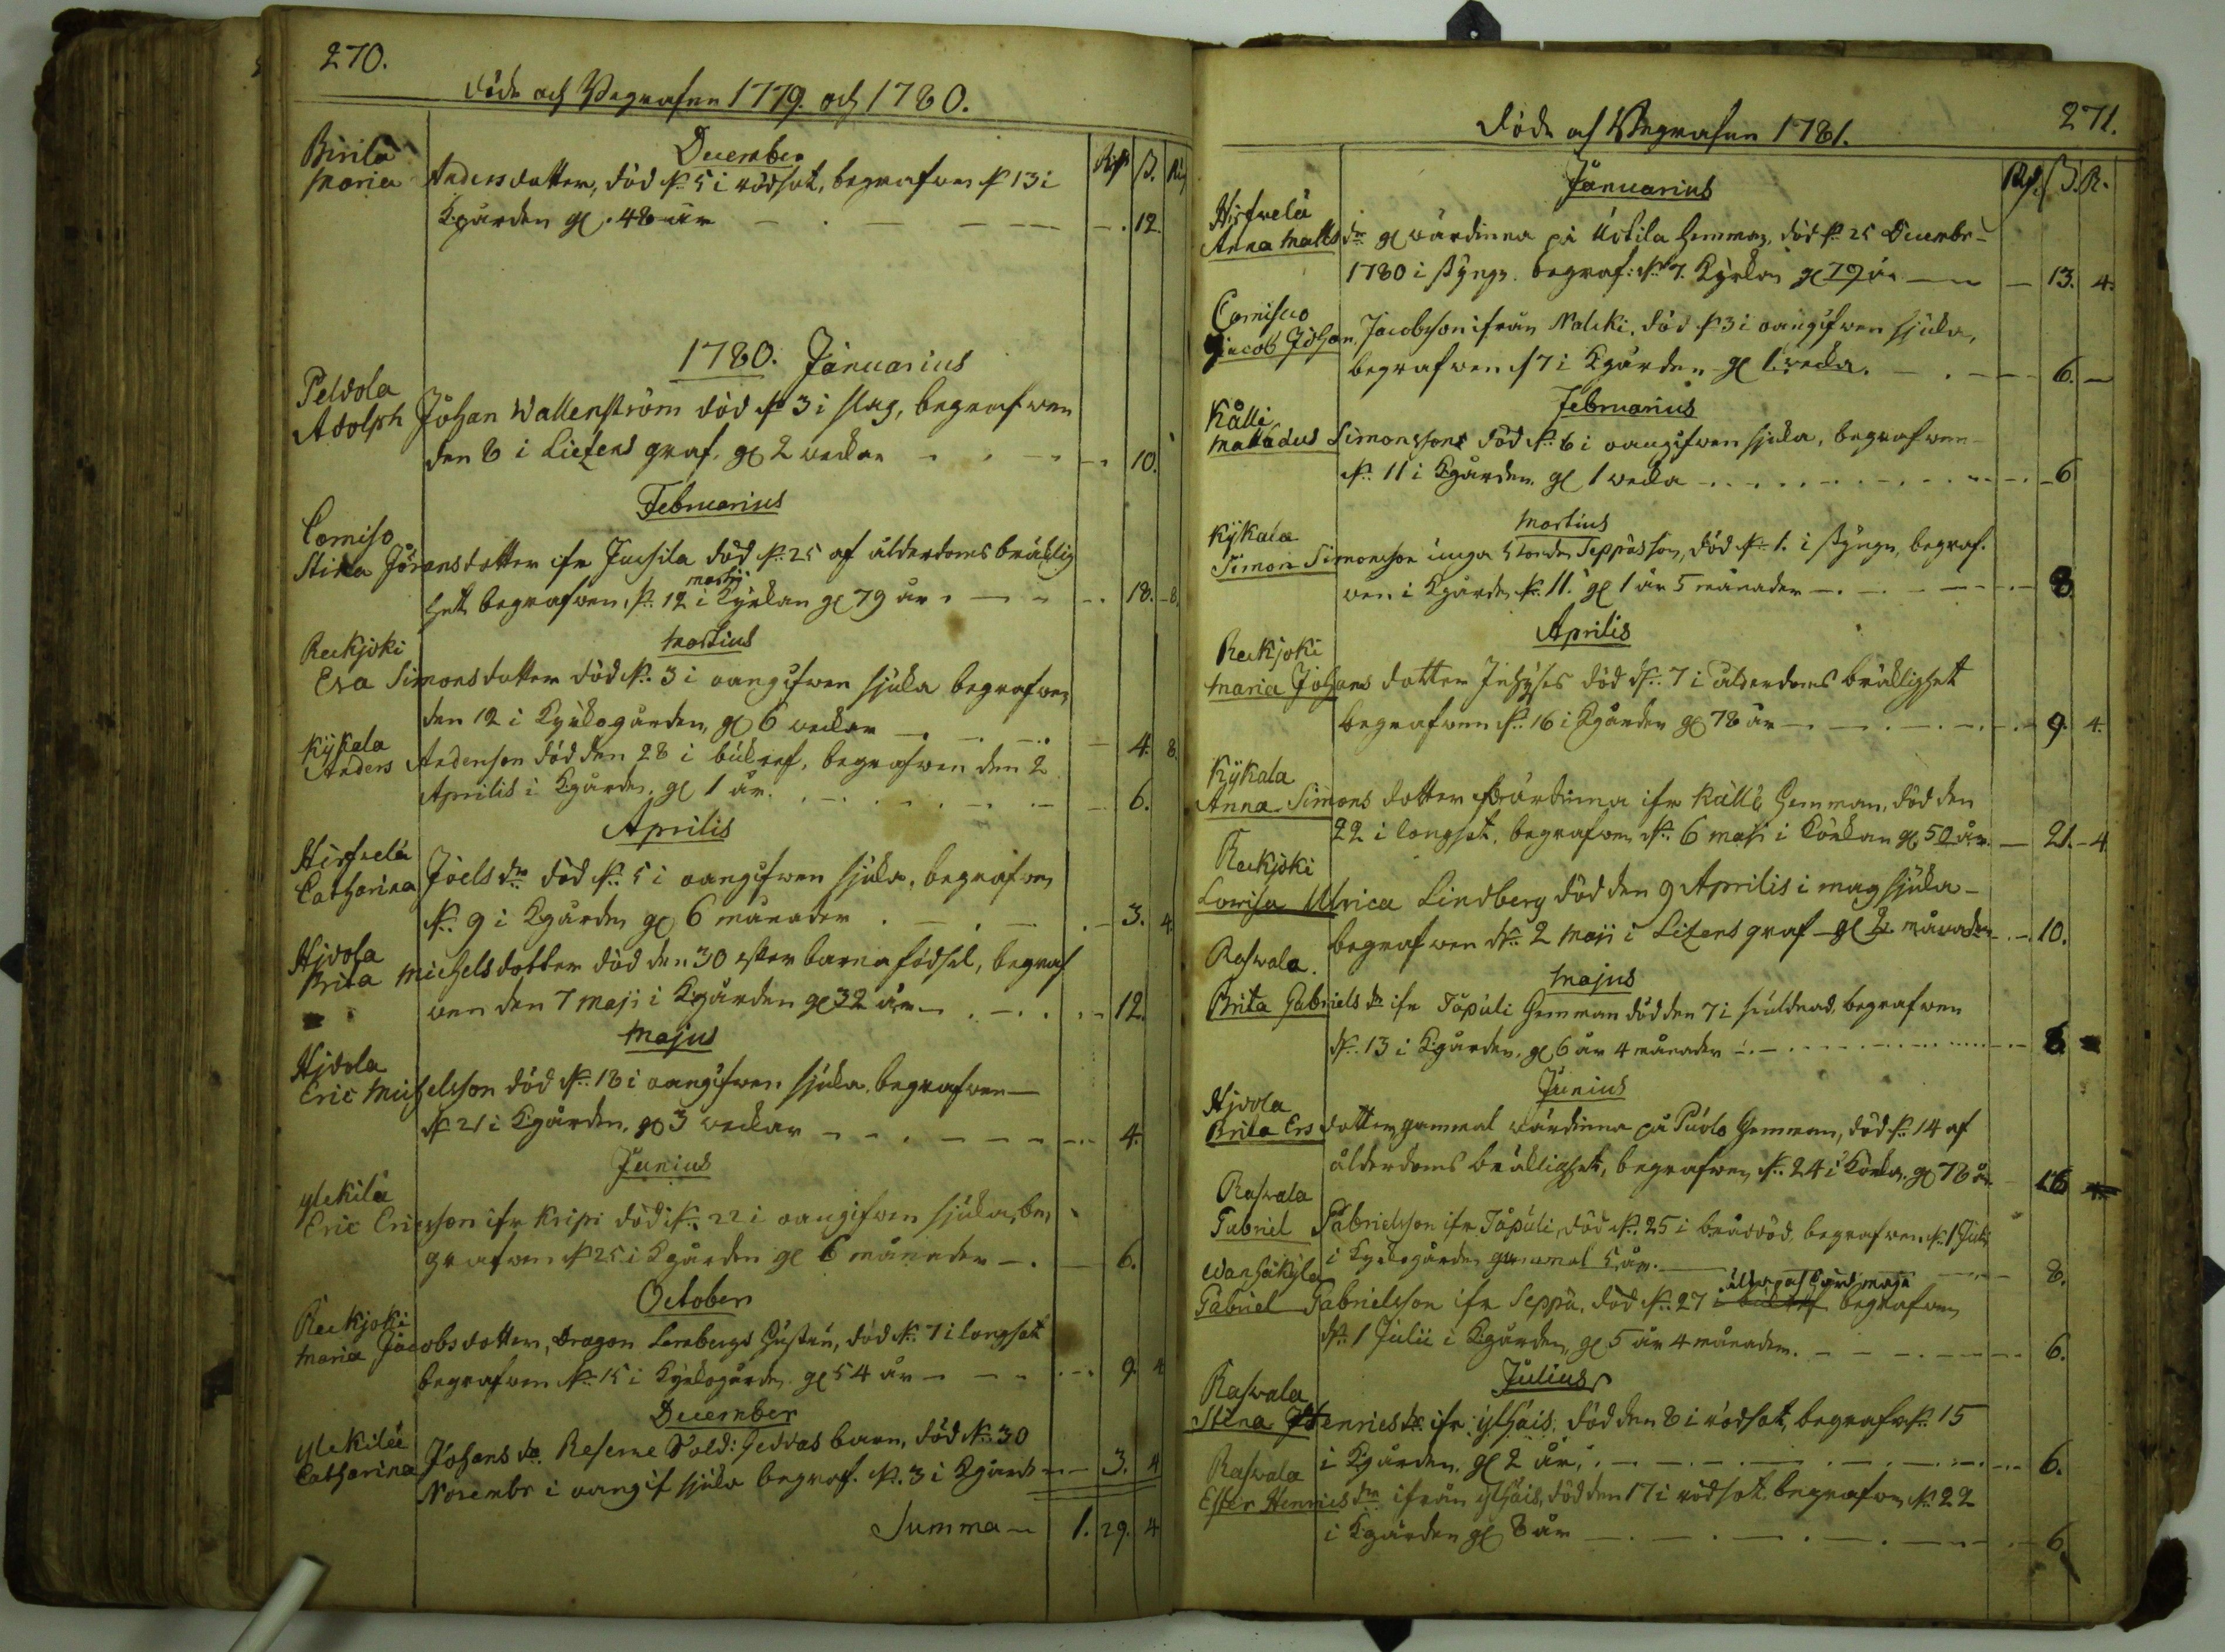 270.
Döde och Begrafne 1779. och 1780.
December
Pirilä
Maria Andersdotter, död d. 5 i rödsot, begrafwen d. 13 i
Kgården gl. 48 år - - - 12.
1780. Januarius
Peldola
Adolph Johan Wallenström död d. 3 i slag, begrafwen
den 8 i Lizens graf. gl 2 weckor - - 10.
Februarius
Comiso
Stina Jöransdotter ifr Juhsila död d. 25 af ålderdoms bräklig
het begrafwen, d. 12 martij i Kyrkan gl 79 år - - 18. - 8.
Martius
Reckjoki
Eva Simonsdotter död d. 3 i oangifwen sjuka begrafwen
den 12 i Kyrkogården, gl 6 weckor - - 4. 8.
Kÿkala
Anders Anderson död den 28 i bukref, begrafwen den 2
Aprilis i Kgården, gl 1 år. - - 6.
Aprilis
Hirfvelä
Catharina Joels dr död d. 5 i oangifwen sjuka, begrafwen
d. 9 i Kgården gl 6 månader - - 3. 4.
Hjdola
Brita Michelsdotter död den 30 efter barnafödsel, begraf
wen den 7 Maji i Kgården gl 32 år - - 12.
Majus
Hjdola
Eric Michelsson död d. 18 i oangifwen sjuka, begrafwen
d. 21 i Kgården, gl 3 weckor - - 4.
Junius
ylekilä
Eric Ericsson ifr Kripi död d. 22 i oangifwen sjuka, be,
grafwen d. 25 i Kgården gl 6 månader - - 6.
October
Reckjoki
Maria Jacobsdotter, Dragon Lembergs Hustru, död d. 7 i lungsot
begrafwen d. 15 i Kyrkogården gl 54 år - - 9. 4
December
ylekilä
Catharina Johans dr. Reserve Sold: Geddas barn, död d. 30
Novembr i oangif sjuka begraf. d. 3 i Kgård - 3. 4
Summa - 1. 29. 4
271.
Döde och Begrafne 1781.
Januarius
Hirfvelä
Anna Matts dr gl wärdinna på Ustila Hemman, död d. 25 Decembr
1780 i styngn. begraf: d. 7. Kyrkan gl 79 år - - 13. 4.
Comisuo
Jacob Johan, Jacobsson ifrån Nalcki, död d. 3 i oangifwen sjuka,
begrafwen d 7 i Kgården gl 1 wecka. - - 6. -
Februarius
Källi
Mattadus Simonsson död d. 6 i oangifwen sjuka, begrafwen
d. 11 i Kgården. gl 1 wecka - - 6
Martius
Kÿkala
Simon Simonsson unga Seppäs son, död d. 1. i styngn, begraf.
wen i Kgården d. 11. gl 1 år 5 månader - - 8.
Aprilis
Reckjoki
Maria Johans dotter Inhyses död d. 7 i ålderdoms bräklighet
begrafwen d. 16 i Kgården gl 78 år - - 9. 4.
Kÿkala
Anna Simons dotter wärdinna ifr Källi Hemman, död den
22 i lungsot, begrafwen d. 6 maji i Körkan gl 50 år. - 21. - 4
Reckjoki
Lovisa Ulrica Lindberg död den 9 Aprilis i mag sjuka -
begrafwen d. 2 Maji i Lizens graf - gl 2 månader - 10.
Majus
Raswala.
Brita Gabriels dr ifr Töpuli Hemman död den 7 i swullnad, begrafwen
d. 13 i Kgården, gl 6 år 4 månader - - 8.
Junius
Hjdola
Brita Ersdotter, gammal wärdinna på Puolo Hemman, död d. 14 af
ålderdoms bräklighet, begrafwen d. 24 i Körkan, gl 78 år - 16
Raswala
Gabriel Gabrielsson ifr Töpuli, död d. 25 i brådöd, begrafwen d. 1 Julii
i Kyrkogården gammal 5 år. - - 8.
Wanhakÿla
Gabriel Gabrielsson ifr Seppä, död d. 27 i bukref begrafwen
d. 1 Julii i Kgården, gl 5 år 4 månader. - - 6.
Julius
Raswala
Stina Henrics dr ifr ylhäis, död den 8 i rödsot, begrafw d. 15
i Kgården, gl 2 år, - - 6.
Raswala
Ester Henrics dr ifrån ylhäis, död den 17 i rödsot, begrafwen d. 22
i Kgården gl 8 år - - 6.